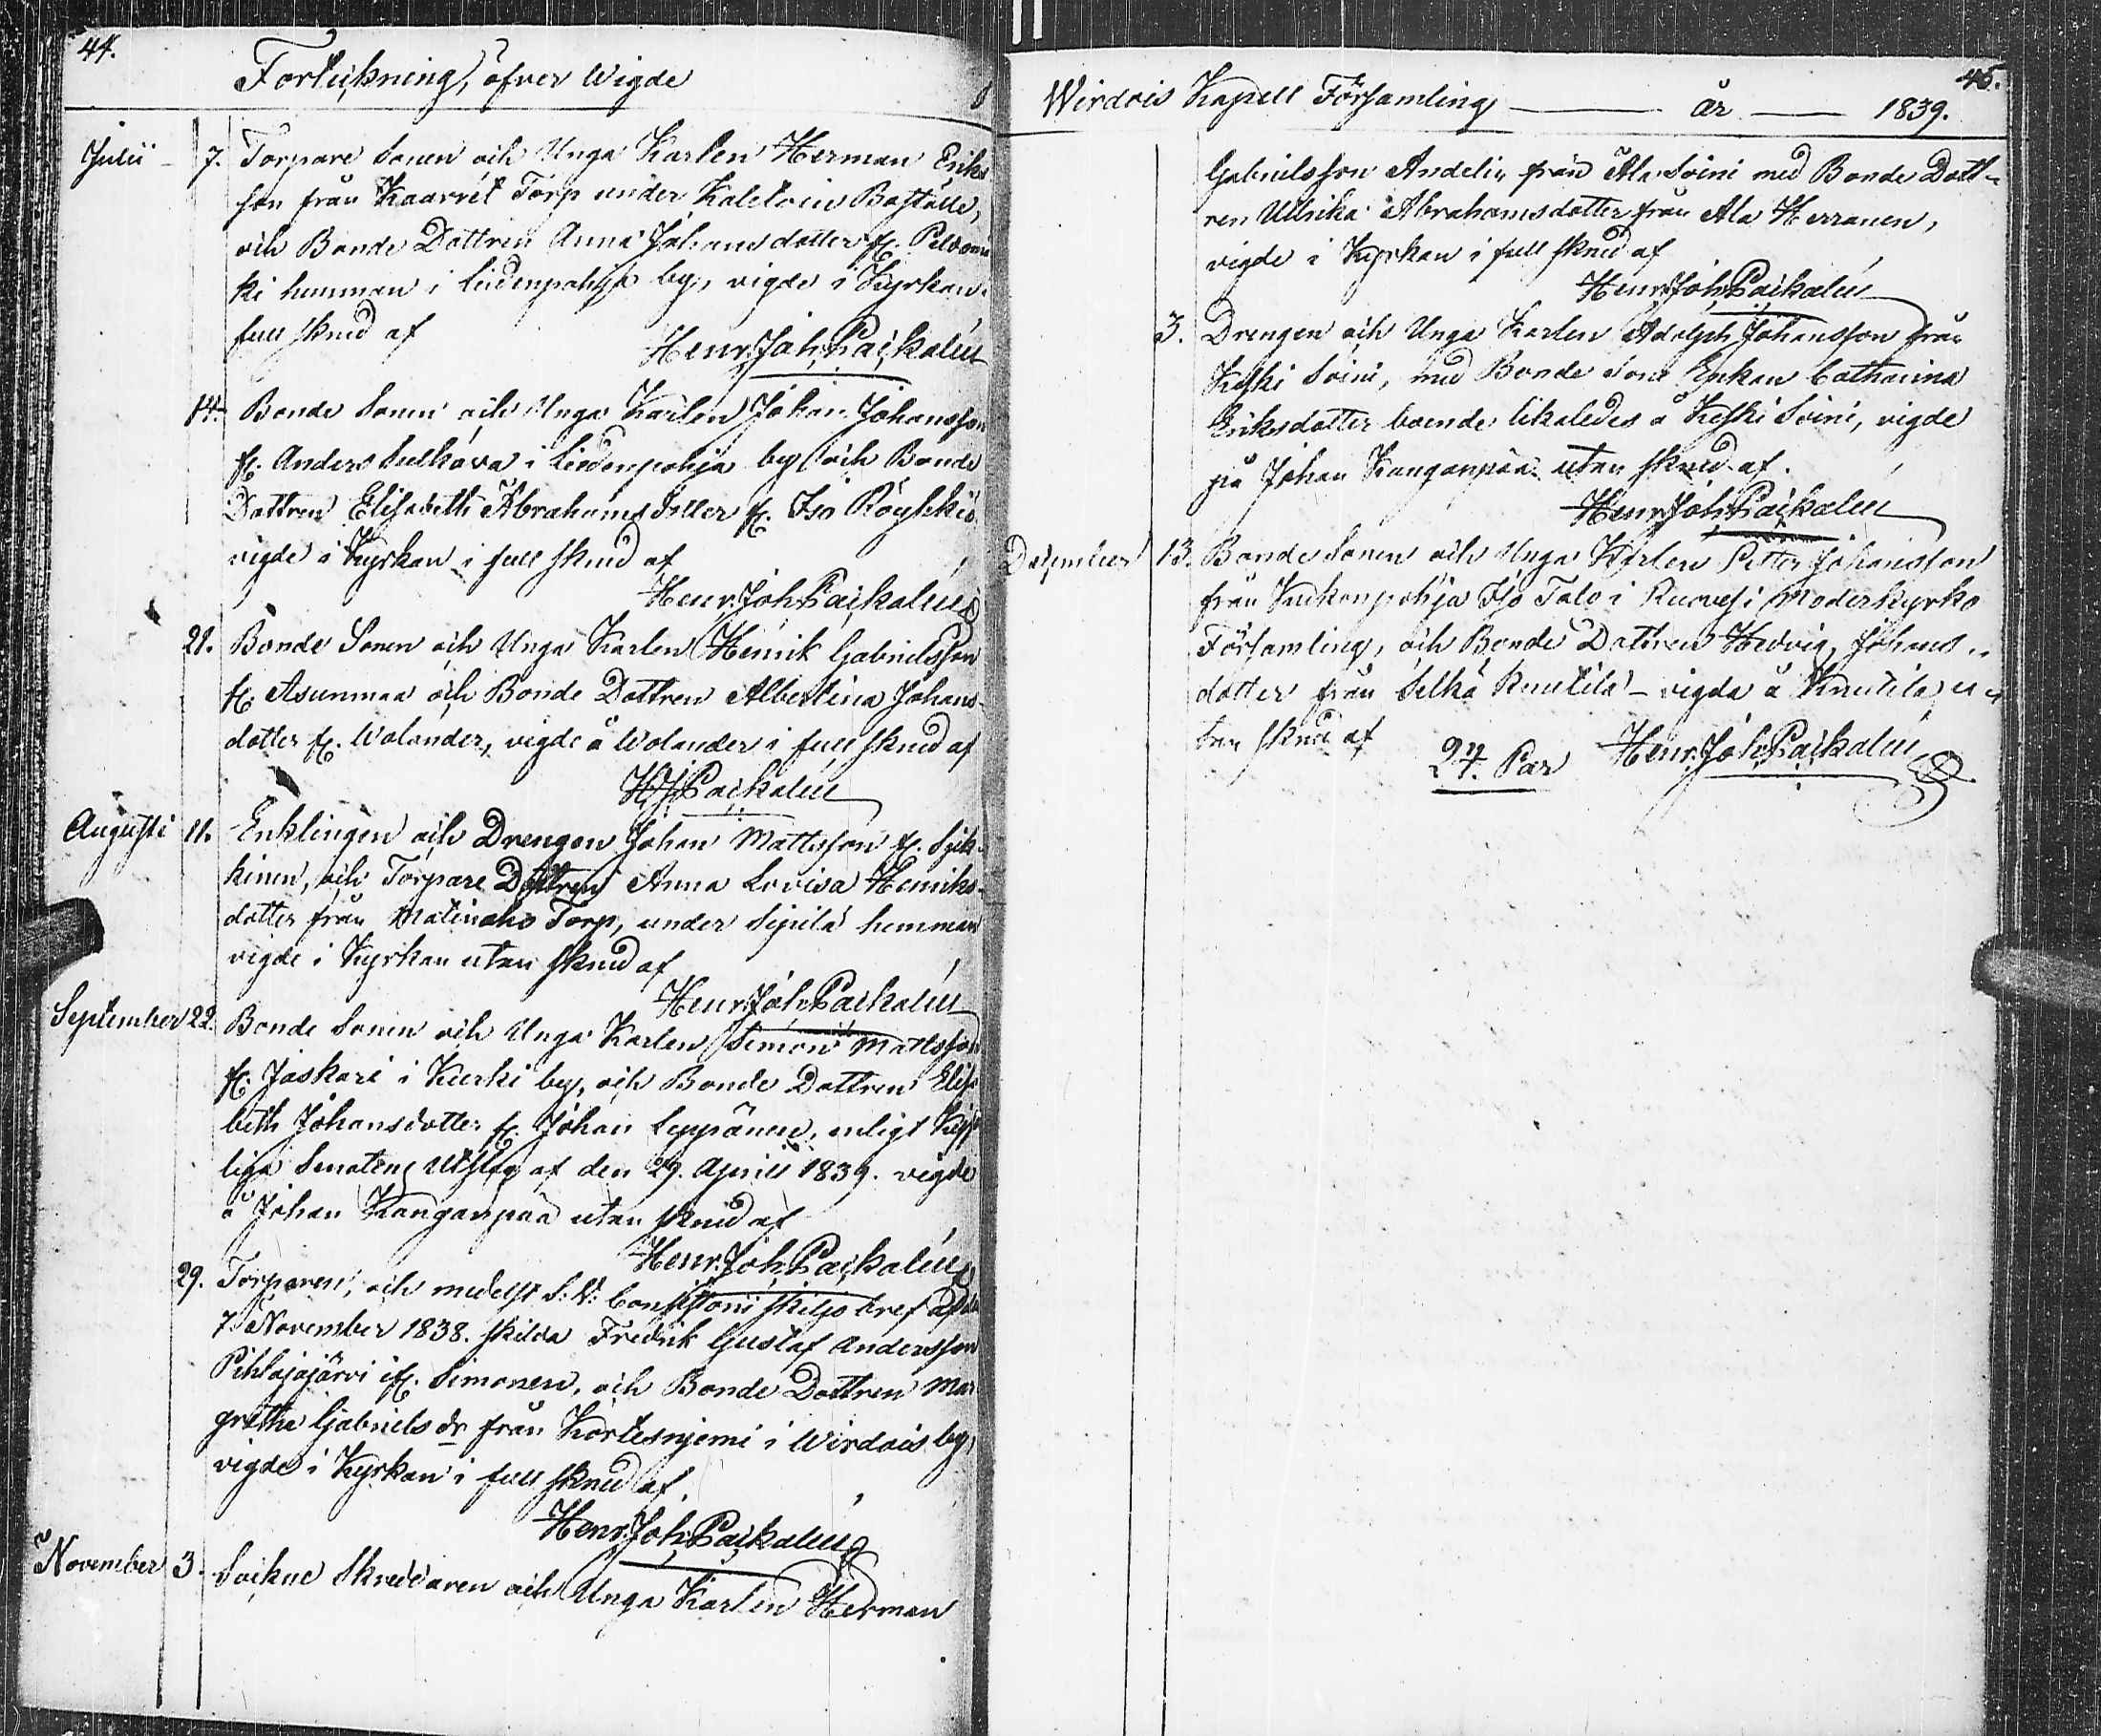 44.
Forteckning, öfver Wigde
Julii 7. Torpare Sonen och Unga Karlen Herman Eriks
son från Kaarret Torp under Kaletoin Boställe,
och Bonde Dottren Anna Johansdotter fr. Peldomä
ki hemman i Liedenpohja by, vigde i Kyrkan i
full skrud af
Henr. Joh. Paickalén
14. Bonde Sonen och Unga Karlen Johan Johansson
fr. Anders Sulkava i Liedenpohja by och Bonde
Dottren Elisabeth Abrahamsdotter fr. Iso Röyhkiö
vigde i Kyrkan i full skrud af
Henr. Joh. Paickalén
21. Bonde Sonen och Unga Karlen Henrik Gabrielsson
fr. Asunmaa och Bonde Dottren Albertina Johans-
dotter fr. Wolander, vigde å Wolander i full skrud af
H. J. Paickalén
Augusti 11. Enklingen och Drengen Johan Mattsson fr. Syk-
kinen, och Torpare Dottren Anna Lovisa Henriks-
dotter från Matinaho Torp, under Sipilä hemman
vigde i Kyrkan utan skrud af
Henr. Joh. Paickalén
September 22. Bonde Sonen och Unga Karlen Simon Mattsson
fr. Jäskari i Kurki by, och Bonde Dottren Elisa
beth Johansdotter fr. Johan Leppänen, enligt Kejser
liga Senatens Utslag af den 29. Aprill 1839. vigde
å Johan Kanganpää utan skrud af
Henr. Joh. Paickalén
29. Torparen, och medelst S: V: Consistorii skiljo bref af den
7 November 1838. skilda Fredrik Gustaf Andersson
Pihlajajärvi fr. Simonen, och Bonde Dottren Mar
gretha Gabriels dr från Kortesnjemi i Wirdois by,
vigde i Kyrkan i full skrud af
Henr. Joh. Paickalén
November 3. Sockne Skreddaren och Unga Karlen Herman
45.
Wirdois Kapell Församling år 1839.
Gabrielsson Andelin från Ala Soini med Bonde Dott-
ren Ullrika Abrahamsdotter från Ala Herranen,
vigde i Kyrkan i full skrud af
Henr. Joh. Paickalén
3. Drengen och Unga Karlen Adolph Johansson från
Keski Soini, med Bonde Sone Enkan Catharina
Eriksdotter boende likaledes å Keski Soini, vigde
på Johan Kanganpää utan skrud af.
Henr. Joh. Paickalén
December 13. Bonde Sonen och Unga Karlen Petter Johansson
från Iso Talo i Ruovesi Moderkyrko
Församling, och Bonde Dottren Hedvig Johans-
dotter från Selkä Knutila - vigda å Knutila, u-
tan skrud af
24. Par Henr. Joh. Paickalén